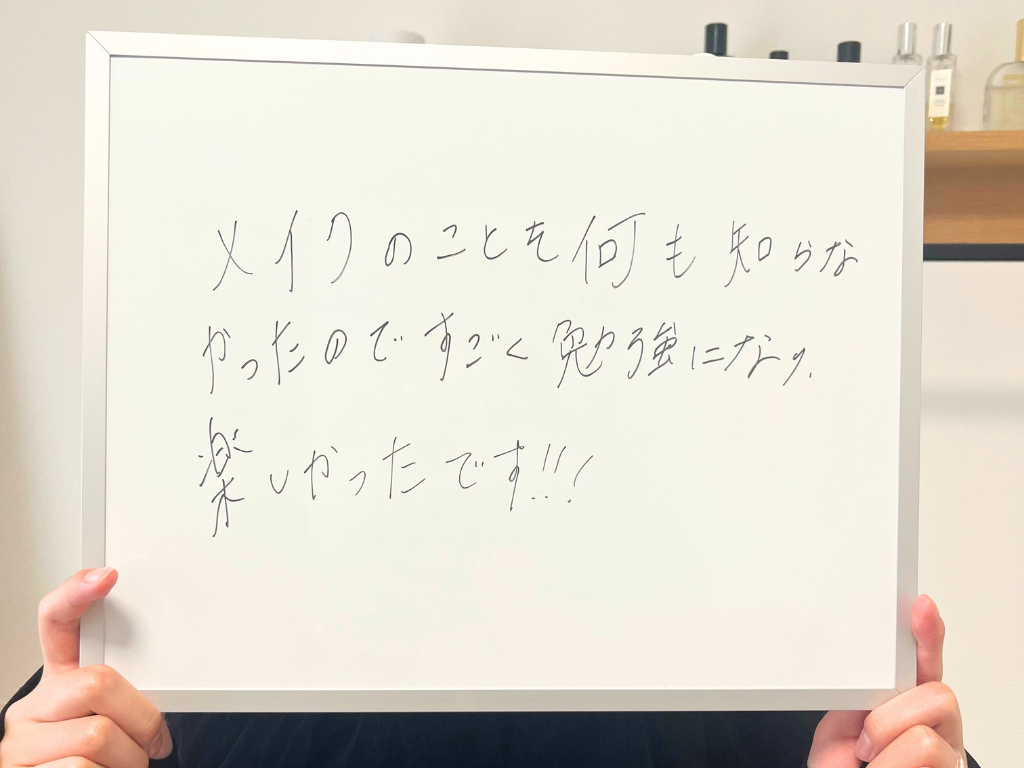 メイクのことを何も知らな
かったのですごく勉強になり、
楽しかったです!!!